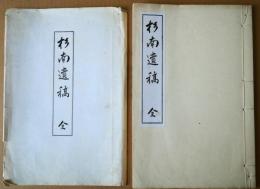 杉南遺稿 全
杉南遺稿 全